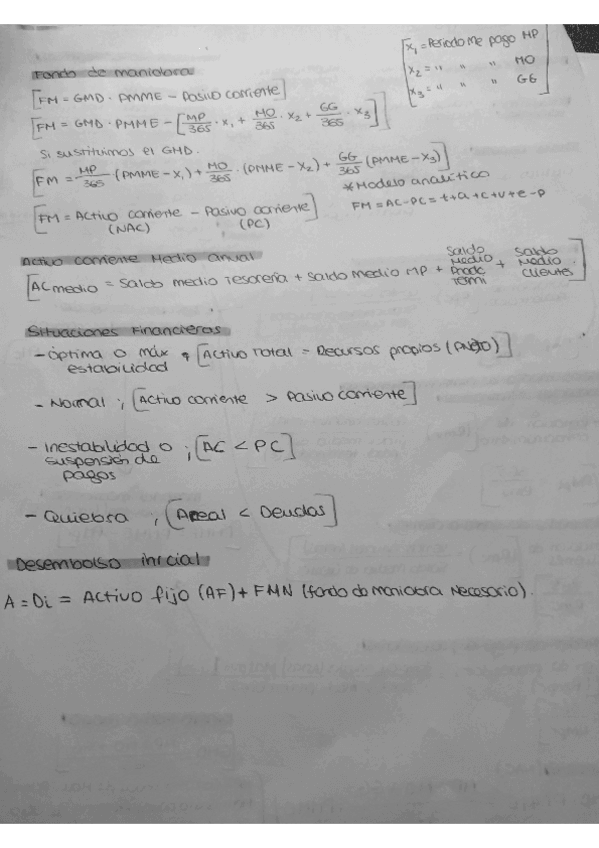 x₁ = Periodo Me pago MP
x₂ = " " " MO
x₃ = " " " GG
Fondo de maniobra
[FM = GMD · PMME - Pasivo corriente]
[FM = GMD · PMME - [MP/365 · x₁ + MO/365 · x₂ + GG/365 · x₃]]
Si sustituimos el GMD.
[FM = MP/365 · (PMME - x₁) + MO/365 · (PMME - x₂) + GG/365 (PMME - x₃)]
* Modelo analítico
FM = AC - PC = t + a + c + v + e - p
[FM = Activo corriente - Pasivo corriente]
(NAC) (PC)
Activo corriente Medio anual
[AC medio = Saldo medio Tesorería + Saldo medio MP + Saldo Medio Prod Termi + Saldo Medio Clientes]
Situaciones Financieras
- Óptima o máx estabilidad [Activo Total = Recursos propios (PNeto)]
- Normal ; [Activo corriente > Pasivo corriente]
- Inestabilidad o suspensión de pagos ; [AC < PC]
- Quiebra ; [Areal < Deudas]
Desembolso inicial
A = Di = Activo fijo (AF) + FMN (fondo do maniobra Necesario).